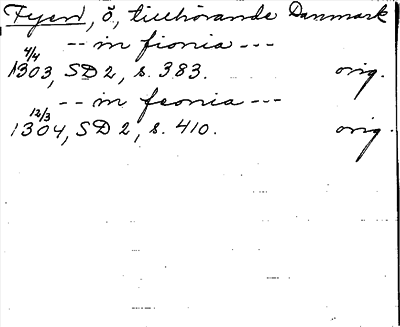 Fyen, ö, tillhörande Danmark
-- in fionia ---
4/4
1303, SD 2, s. 383. orig.
-- in feonia ---
12/3
1304, SD 2, s. 410. orig.